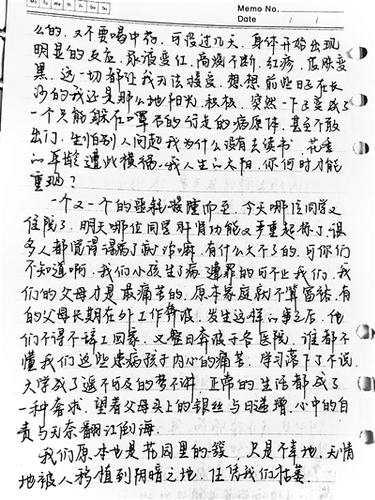 Memo No.
Mo Tu We Th Fr Sa Su
Date / /
么的,又不要喝中药,可没过几天,身体开始出现
明显的反应,尿液变红,高烧不断,红疹,皮肤变
黑,这一切都让我无法接受,想想前些日子在长
沙的我还是那么地阳光,积极,突然一下子变成了
一个只能躲在口罩后的行走的病原体,甚至不敢
出门,生怕别人问起我为什么没有去读书,花季
的年龄遭此横祸,我人生的太阳,你何时才能
重现?
一个又一个的噩耗接踵而至,今天哪位同学又
住院了,明天哪位同学肝肾功能又严重超标了,很
多人都觉得得病了就治嘛,有什么大不了的,可你们
不知道啊,我们小孩生了病遭罪的可不止我们,我
们的父母才是最痛苦的,原本家庭就不算富裕,有
的父母长期在外工作奔波,发生这样的事之后,他
们不得不辞工回家,又整日奔波于各医院,谁都不
懂我们这些患病孩子内心的痛苦,学习落下了不说,
大学成了遥不可及的梦不讲,正常的生活都成了
一种奢求,望着父母头上的银丝与日递增,心中的自
责与无奈翻江倒海.
我们原本也是花园里的
只是不幸地,无情
地被人移植到阴暗之地,任凭我们枯萎.